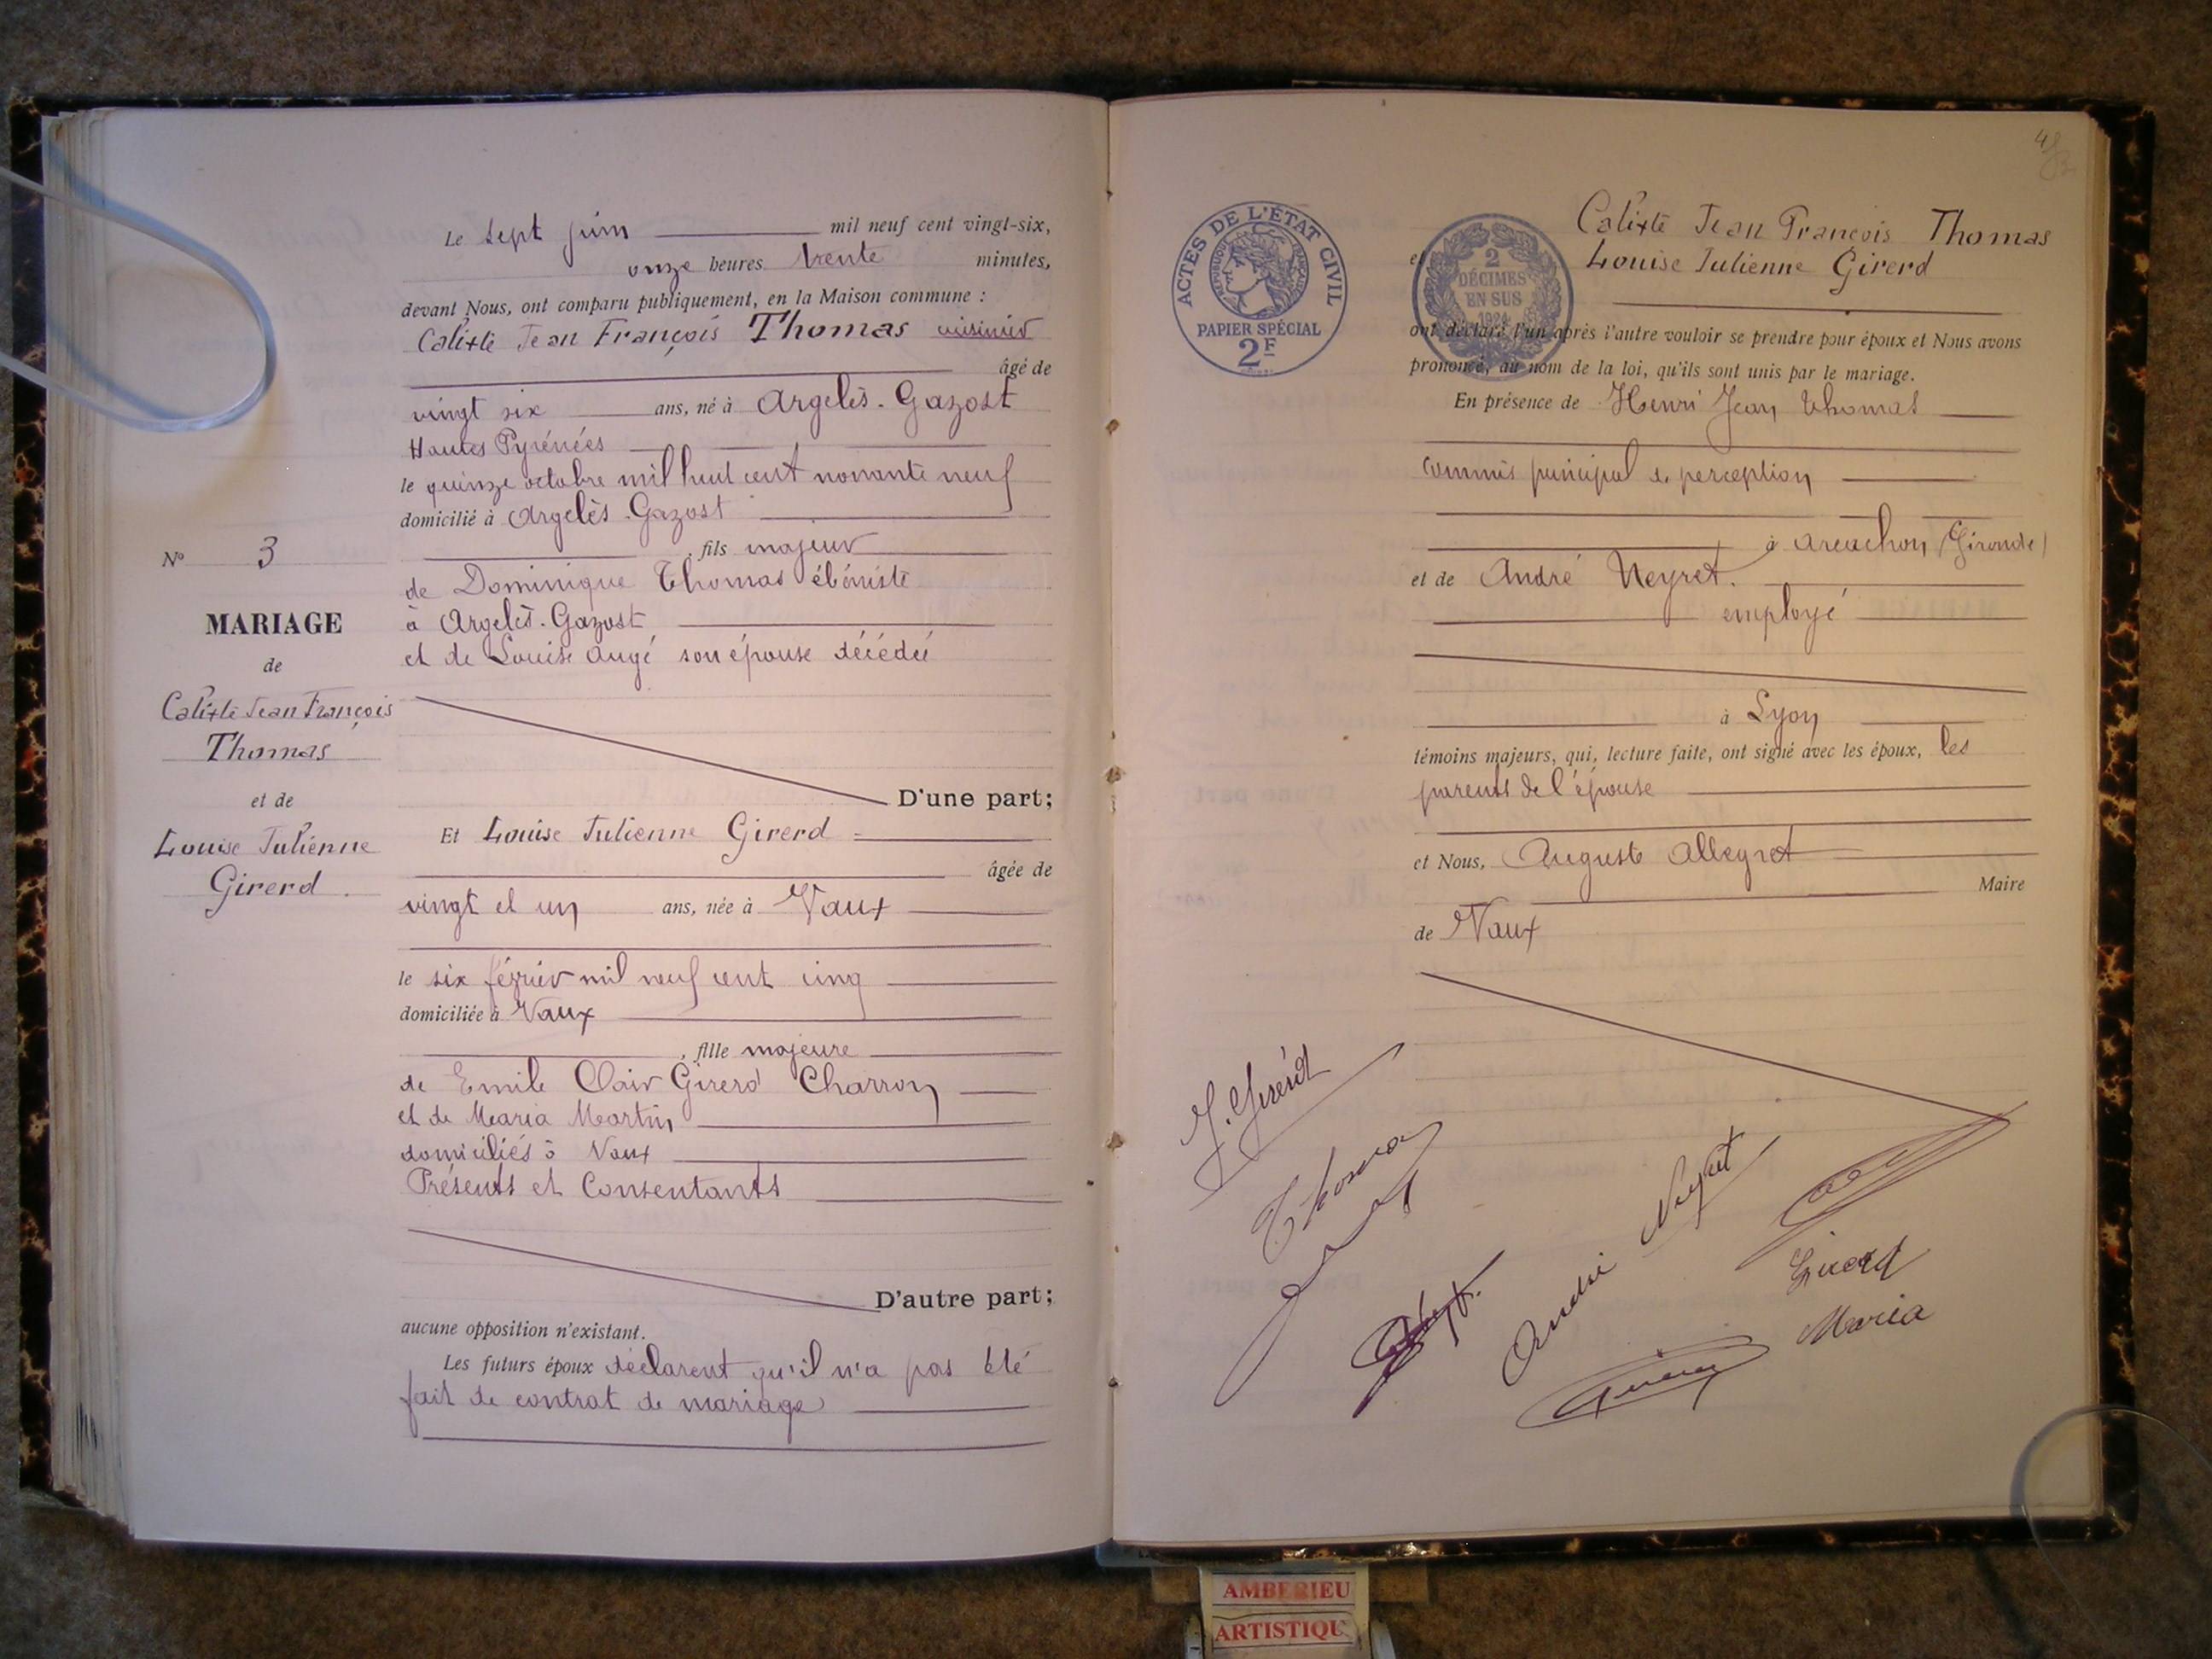 Le sept juin mil neuf cent vingt-six,
onze heures trente minutes,
devant Nous, ont comparu publiquement, en la Maison commune :
Calixte Jean François Thomas cuisinier
âgé de
vingt six ans, né à Argelès-Gazost
Hautes Pyrénées
le quinze octobre mil huit cent nonante neuf
domicilié à Argelès-Gazost
, fils majeur
de Dominique Thomas ébéniste
à Argelès-Gazost
et de Louise Augé son épouse décédée
D'une part;
Et Louise Julienne Girerd
âgée de
vingt et un ans, née à Vaux
le six février mil neuf cent cinq
domiciliée à Vaux
, fille majeure
de Emile Clair Girerd Charron
et de Maria Martin
domiciliés à Vaux
Présents et Consentants
D'autre part;
aucune opposition n'existant.
Les futurs époux déclarent qu'il n'a pas été
fait de contrat de mariage
N° 3
MARIAGE
de
Calixte Jean François
Thomas
et de
Louise Julienne
Girerd
ACTES DE L'ÉTAT CIVIL
RÉPUBLIQUE FRANÇAISE
PAPIER SPÉCIAL
2F
2
DÉCIMES
EN SUS
1924
Calixte Jean François Thomas
et Louise Julienne Girerd
ont déclaré l'un après l'autre vouloir se prendre pour époux et Nous avons
prononcé, au nom de la loi, qu'ils sont unis par le mariage.
En présence de Henri Jean Thomas
commis principal de perception
à Arcachon (Gironde)
et de André Neyret.
employé
à Lyon
témoins majeurs, qui, lecture faite, ont signé avec les époux, les
parents de l'épouse
et Nous, Auguste Alleyret
Maire
de Vaux
J. Girerd
Thomas
André Neyret
Girerd
Maria
AMBERIEU
ARTISTIQU